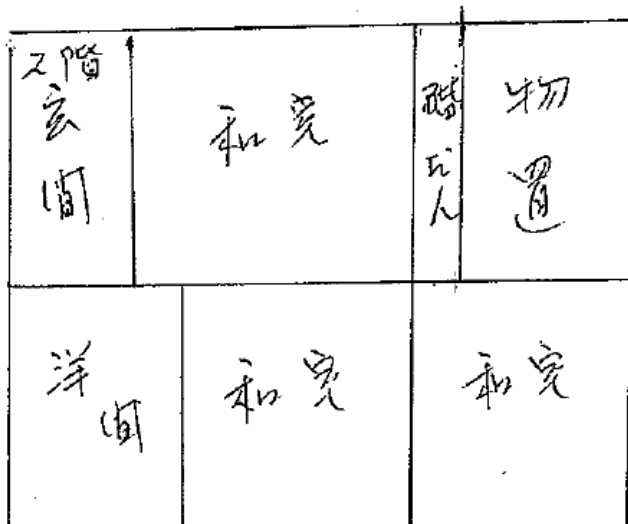 2階
玄
間
和室
階だん
物
置
洋
間
和室
和室